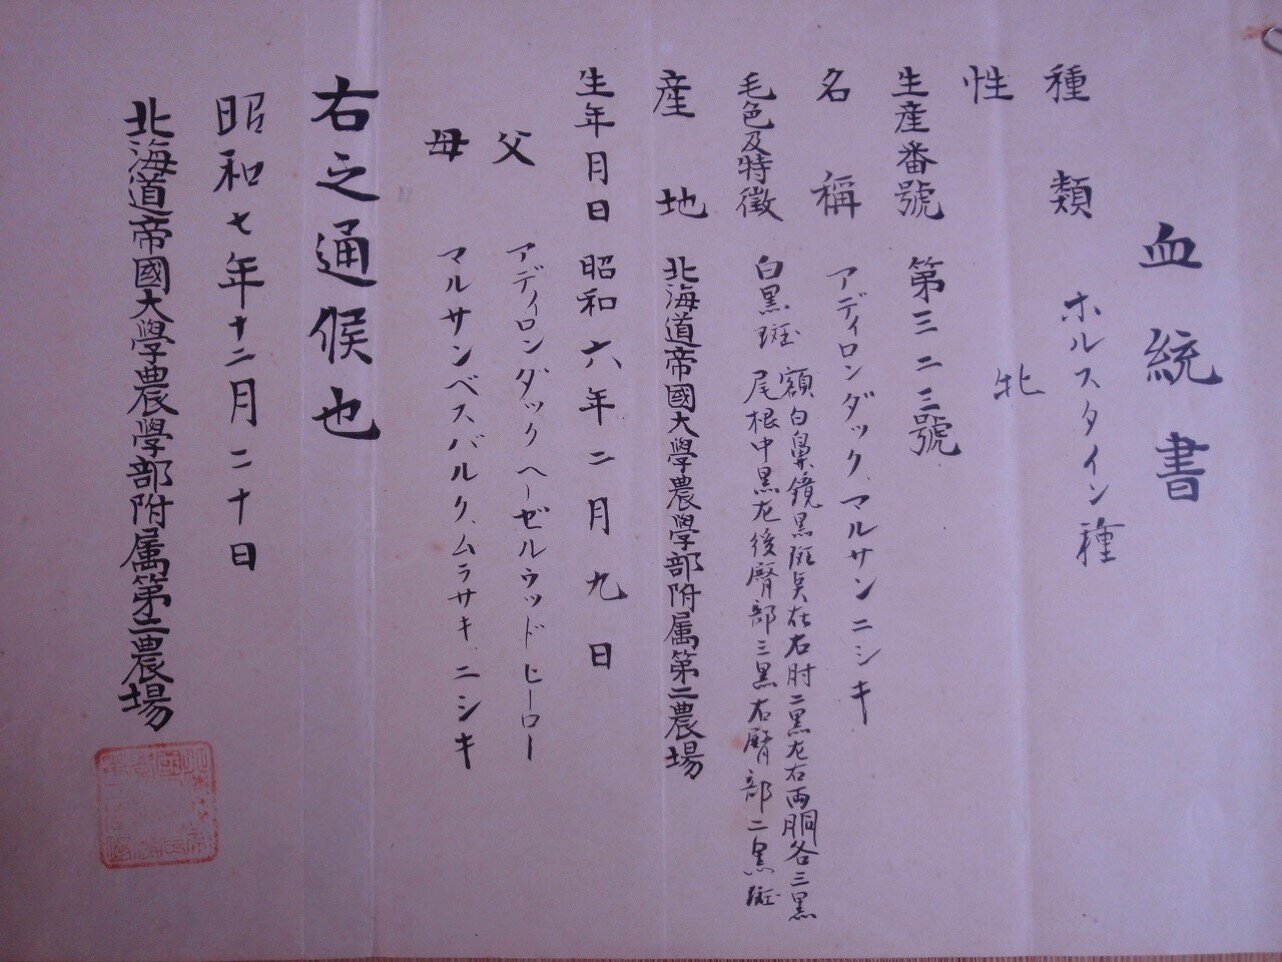 血統書
種類 ホルスタイン種
性 牝
生産番號 第三二三號
名稱 アディロンダック、マルサンニシキ
毛色及特徴 白黒斑 額白鼻鏡黒斑点在右肘二黒左右両胴各三黒
尾根中黒左後臀部三黒右臀部二黒斑
産地 北海道帝國大學農學部附属第二農場
生年月日 昭和六年二月九日
父 アディロンダック ヘーゼルウッドヒーロー
母 マルサンベスバルク、ムラサキ、ニシキ
右之通候也
昭和七年十二月二十日
北海道帝國大學農學部附属第二農場